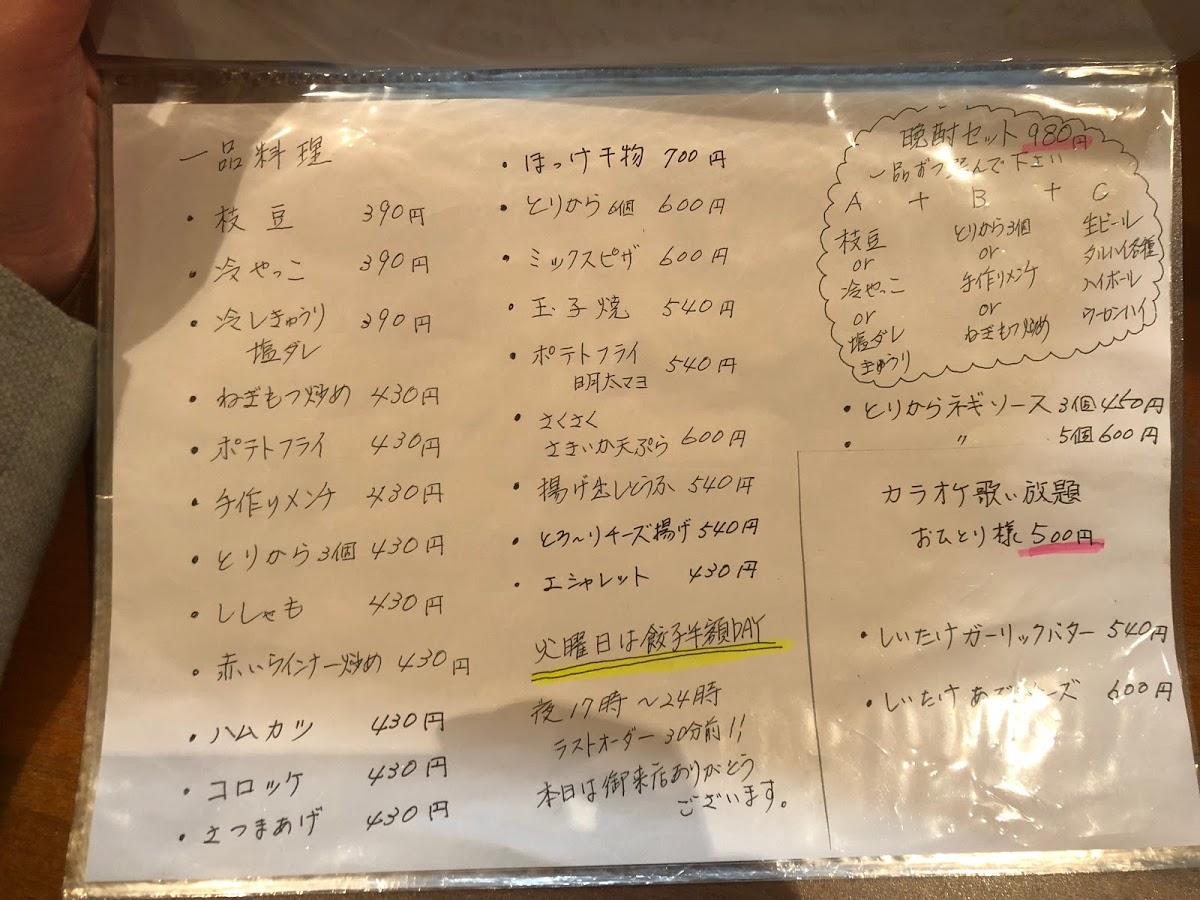 一品料理
・枝豆 390円
・冷やっこ 390円
・冷しきゅうり 390円
塩ダレ
・ねぎもつ炒め 430円
・ポテトフライ 430円
・手作りメンチ 430円
・とりから3個 430円
・ししゃも 430円
・赤いウインナー炒め 430円
・ハムカツ 430円
・コロッケ 430円
・さつまあげ 430円
・ほっけ干物 700円
・とりから6個 600円
・ミックスピザ 600円
・玉子焼 540円
・ポテトフライ 540円
明太マヨ
・さくさく
さきいか天ぷら 600円
・揚げ出しどうふ 540円
・とろ~りチーズ揚げ 540円
・エシャレット 430円
火曜日は餃子半額DAY
夜17時~24時
ラストオーダー30分前!!
本日は御来店ありがとう
ございます。
晩酌セット 980円
一品ずつ選んで下さい
A + B + C
枝豆
or
冷やっこ
or
塩ダレ
きゅうり
とりから3個
or
手作りメンチ
or
ねぎもつ炒め
生ビール
タルハイ各種
ハイボール
ウーロンハイ
・とりからネギソース 3個450円
・〃 5個600円
カラオケ歌い放題
おひとり様 500円
・しいたけガーリックバター 540円
・しいたけ 600円